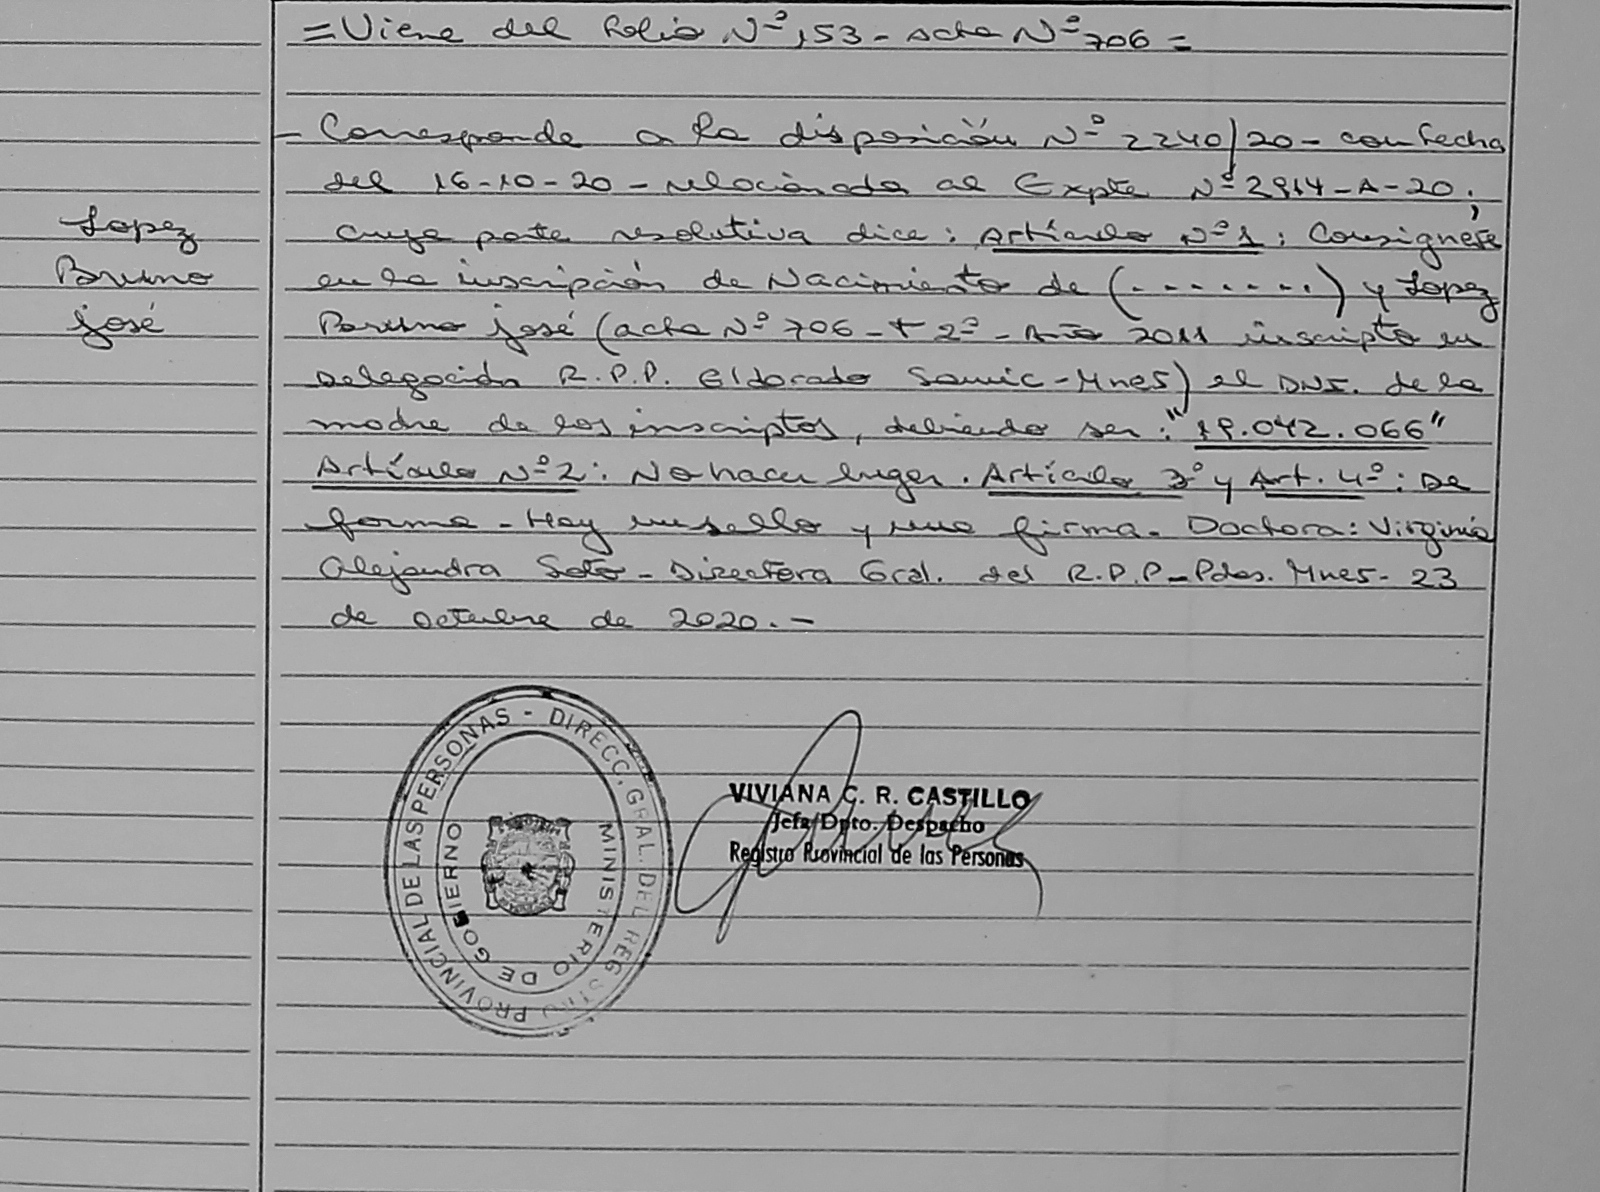 = Viene del folio Nº 153 - Acta Nº 706 =
- Corresponde a la disposición Nº 2240/20 - con fecha
del 16-10-20 - relacionada al Expte Nº 2914-A-20;
Lopez
Bruno
José
cuya parte resolutiva dice: Artículo Nº 1: Consignese
en la inscripción de Nacimiento de (.......) y Lopez
Bruno José (acta Nº 706 - t 2º - Año 2011 inscripto en
Delegación R.P.P. Eldorado Samic - Mnes) el DNI. de la
madre de los inscriptos, debiendo ser: "19.042.066"
Artículo Nº 2: No hacer lugar. Artículo 3º y Art. 4º: De
forma - Hay un sello y una firma. Doctora: Virginia
Alejandra Soto - Directora Gral. del R.P.P - Pdas. Mnes - 23
de octubre de 2020. -
DIRECC. GRAL. DEL REGISTRO PROVINCIAL DE LAS PERSONAS -
MINISTERIO DE GOBIERNO
VIVIANA C. R. CASTILLO
Jefa Dpto. Despacho
Registro Provincial de las Personas